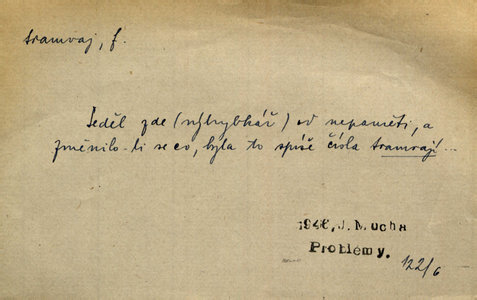 tramvaj, f.
Seděl zde (výhybkář) od nepaměti, a
změnilo-li se co, byla to spíše čísla tramvají...
1946, J. Mucha
Problémy.
122/6